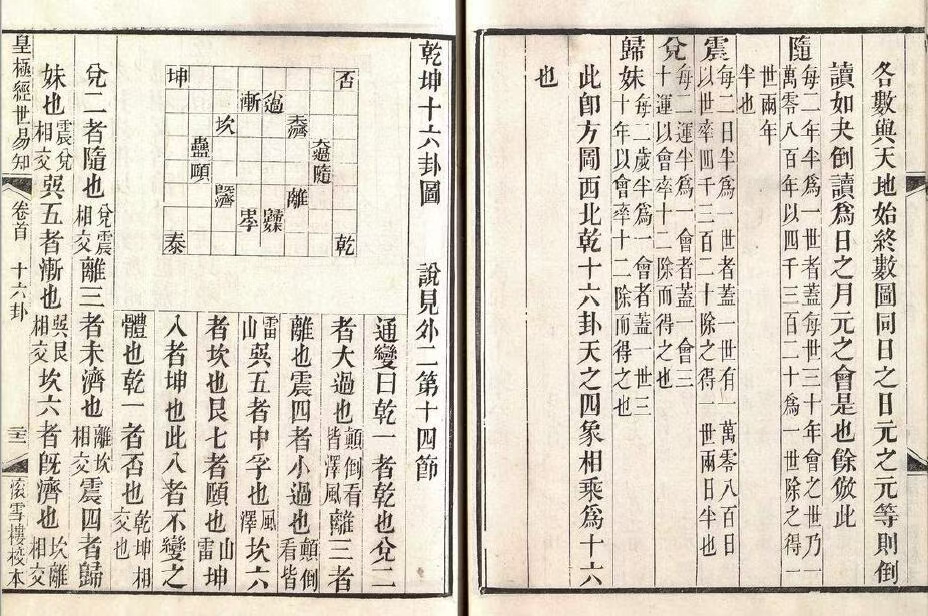 各數與天地始終數圖同日之日元之元等則倒
讀如夬倒讀爲日之月元之會是也餘倣此
隨每二年半爲一世者蓋每世三十年會之世乃一
萬零八百年以四千三百二十爲一世除之得一
世兩年
半也
震每二日半爲一世者蓋一世有一萬零八百日
以世率四千三百二十除之得一世兩日半也
兌每二運半爲一會者蓋一會三
十運以會率十二除而得之也
歸妹每二歲半爲一會者蓋一世三
十年以會率十二除而得之也
此卽方圖西北乾十六卦天之四象相乘爲十六
也
乾坤十六卦圖 說見外二第十四節
否
乾
大過
隨
未濟
離
過
歸妹
漸
孚
坎
旣濟
蠱
頤
坤
泰
通變曰乾一者乾也兌二
者大過也顛倒看皆澤風離三者
離也震四者小過也顛倒看皆
雷山巽五者中孚也風澤坎六
者坎也艮七者頤也山雷坤
八者坤也此八者不變之
體也乾一者否也乾坤相交也
兌二者隨也兌震相交離三者未濟也離坎相交震四者歸
妹也震兌相交巽五者漸也巽艮相交坎六者旣濟也坎離相交
皇極經世易知 卷首 十六卦 雪樓校本